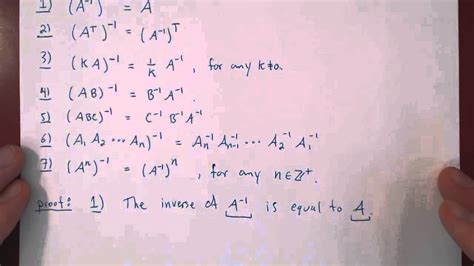 1) (A⁻¹)⁻¹ = A
2) (Aᵀ)⁻¹ = (A⁻¹)ᵀ
3) (kA)⁻¹ = 1/k A⁻¹, for any k≠0.
4) (AB)⁻¹ = B⁻¹A⁻¹
5) (ABC)⁻¹ = C⁻¹B⁻¹A⁻¹
6) (A₁A₂⋯Aₙ)⁻¹ = Aₙ⁻¹Aₙ₋₁⁻¹⋯A₂⁻¹A₁⁻¹
7) (Aⁿ)⁻¹ = (A⁻¹)ⁿ, for any n∈ℤ⁺.
proof: 1) The inverse of A⁻¹ is equal to A.